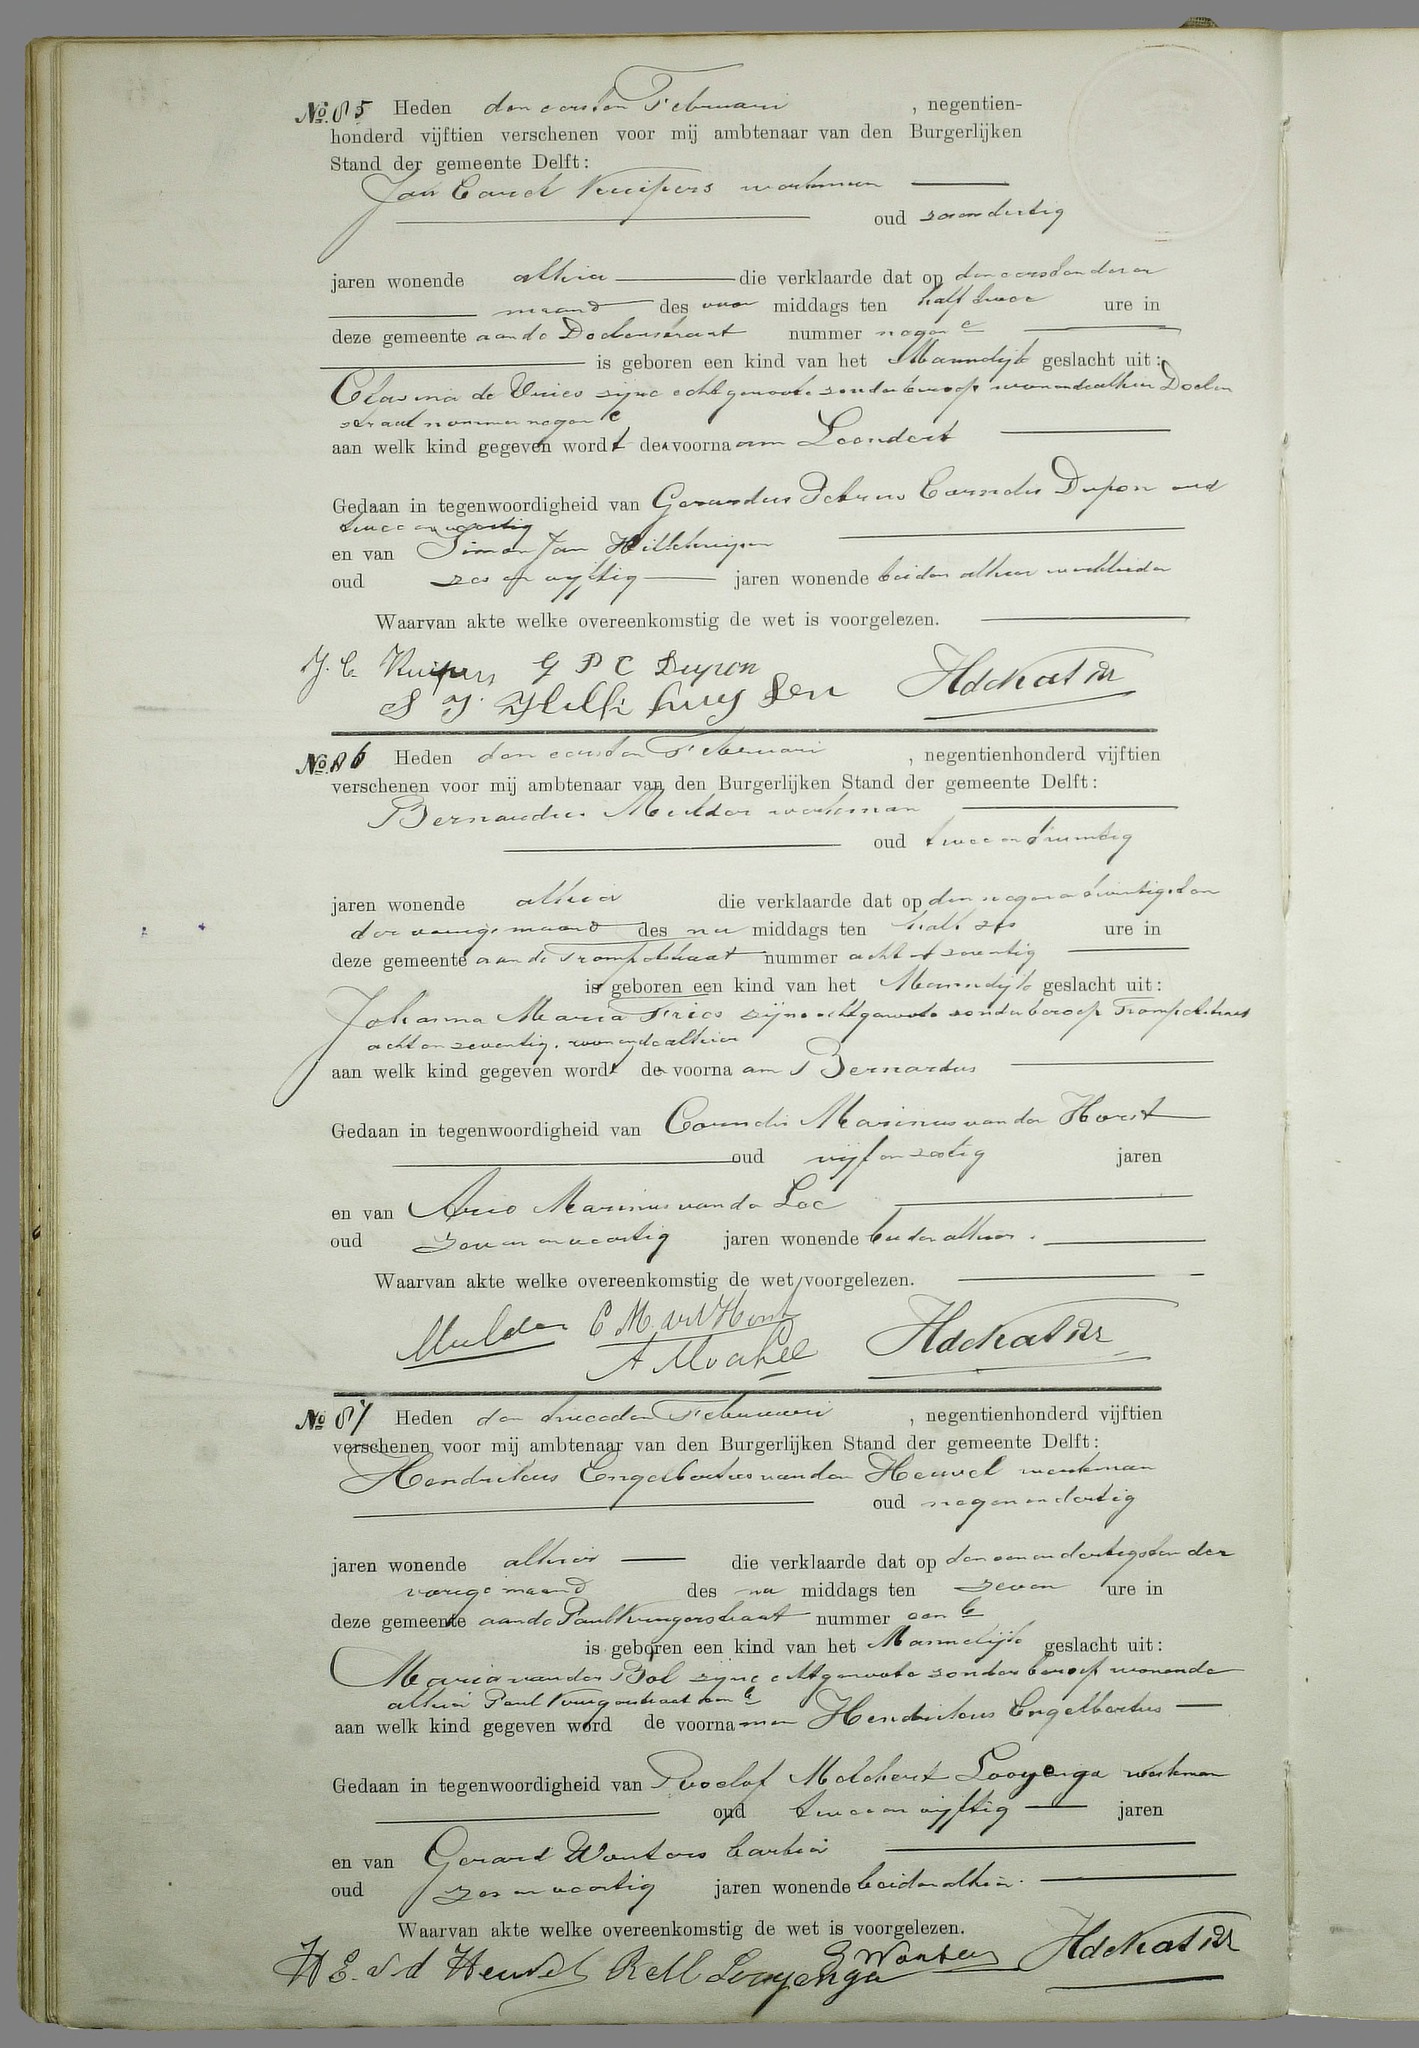 No. 85 Heden den eersten Februari , negentien-
honderd vijftien verschenen voor mij ambtenaar van den Burgerlijken
Stand der gemeente Delft:
Jan Carel Kuipers workman
oud zesendertig
jaren wonende alhier die verklaarde dat op den eersten dezer
maand des voor middags ten half twee ure in
deze gemeente aan de Doelenstraat nummer negen c
is geboren een kind van het Mannelijk geslacht uit:
Clasina de Vries zijne echtgenoote zonder beroep wonende alhier Doelen
straat nummer negen c
aan welk kind gegeven wordt de voornaam Leendert
Gedaan in tegenwoordigheid van Gerardus Petrus Cornelis Dupon oud
twee en veertig
en van Simon Jan Hillekuijsen
oud zes en vijftig jaren wonende beiden alhier
Waarvan akte welke overeenkomstig de wet is voorgelezen.
J. C. Kuipers G P C Dupon
S J. Hillekuysen HdeKat
No. 86 Heden den eersten Februari , negentienhonderd vijftien
verschenen voor mij ambtenaar van den Burgerlijken Stand der gemeente Delft:
Bernardus Mulder workman
oud twee en twintig
jaren wonende alhier die verklaarde dat op den negenentwintigsten
der vorige maand des na middags ten half zes ure in
deze gemeente aan de Trompetstraat nummer acht en zeventig
is geboren een kind van het Mannelijk geslacht uit:
Johanna Maria Fries zijne echtgenoote zonder beroep Trompetstraat
acht en zeventig, wonende alhier
aan welk kind gegeven wordt de voornaam Bernardus
Gedaan in tegenwoordigheid van Cornelis Marinus van der Horst
oud vijf en zestig jaren
en van Arie Marinus van der Lee
oud zeven en veertig jaren wonende beiden alhier.
Waarvan akte welke overeenkomstig de wet voorgelezen.
Mulder C M vd Horst
A M vd Lee HdeKat
No. 87 Heden den tweeden Februari , negentienhonderd vijftien
verschenen voor mij ambtenaar van den Burgerlijken Stand der gemeente Delft:
Hendrikus Engelbertus van den Heuvel workman
oud negen en dertig
jaren wonende alhier die verklaarde dat op den een en dertigsten der
vorige maand des na middags ten zeven ure in
deze gemeente aan de Paul Krugerstraat nummer een b
is geboren een kind van het Mannelijk geslacht uit:
Maria van der Bol zijne echtgenoote zonder beroep wonende
alhier Paul Krugerstraat een b
aan welk kind gegeven word de voornamen Hendrikus Engelbertus
Gedaan in tegenwoordigheid van Roelof Melchert Looyenga workman
oud twee en vijftig jaren
en van Gerard Wouters barbier
oud zes en veertig jaren wonende beiden alhier.
Waarvan akte welke overeenkomstig de wet is voorgelezen.
H E. v d Heuvel R M Looyenga G Wouters HdeKat